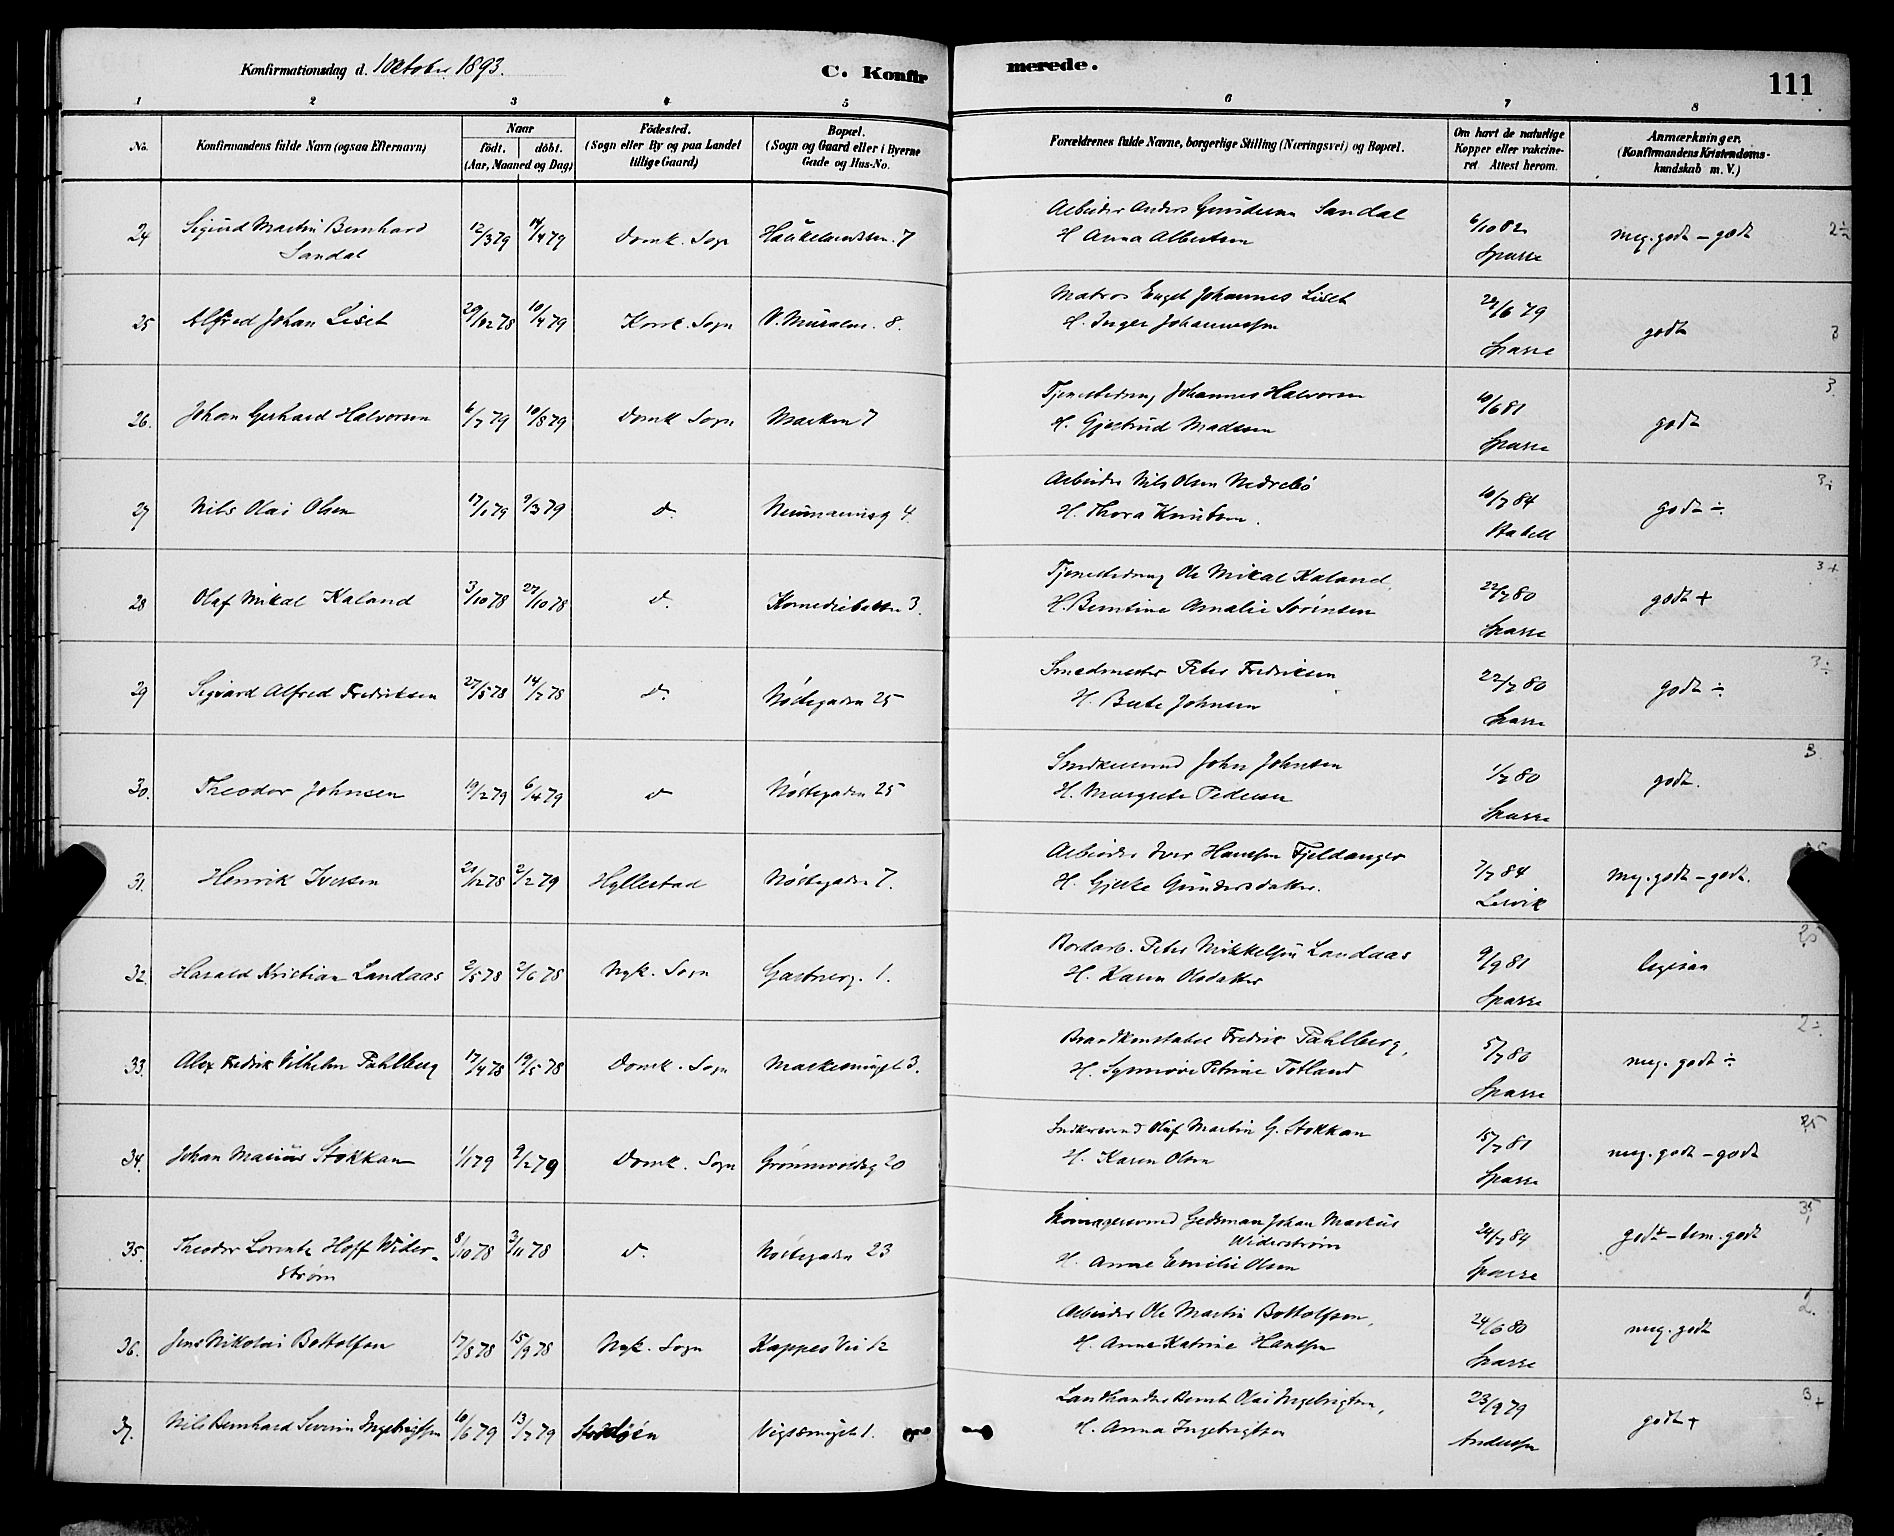 Konfirmationsdag d. 1 Oktober 1893.
C. Konfir
merede.
111
1 2 3 4 5 6 7 8
No.
Konfirmandens fulde Navn (ogsaa Efternavn)
Naar
födt. döbt.
(Aar, Maaned og Dag)
Födested.
(Sogn eller By og paa Landet
tillige Gaard)
Bopæl.
(Sogn og Gaard eller i Byerne
Gade og Hus-No.
Forældrenes fulde Navne, borgerlige Stilling (Næringsvei) og Bopæl.
Om havt de naturlige
Kopper eller vakcine-
ret Attest herom.
Anmærkninger.
(Konfirmandens Kristendoms-
kundskab m. V.)
24 Sigurd Martin Bernhard 12/3 79 14/4 79 Domk. Sogn 7 Arbeider Anders Sandal 6/10 82 meg. godt - godt 2÷
Sandal H. Anna Albertsen Sparre
25 Alfred Johan Liset 29/12 78 10/4 79 Kork. Sogn 8. Matros Engel Johannes Liset 29/6 79 godt 3
H. Inger Johannessen Sparre
26. Johan Gerhard Halvorsen 6/7 79 10/8 79 Domk Sogn Marken 7 Johannes Halvorsen 10/6 81 godt 3.
H. Gjertrud Madssen Sparre
27 Nils Olai Olsen 17/1 79 9/3 79 d. Neumannsg 4. Arbeider Nils Olsen Nedrebö 10/7 84 godt ÷ 3÷
H. Thora Knutsen. Stabell
28 Olaf Mikal Kaland 3/10 78 27/10 78 d. 3. Ole Mikal Kaland, 22/7 80 godt + 3+
H. Berntine Amalie Sörensen Sparre
29 Sigvard Alfred Fredriksen 27/5 78 14/7 78 d. Nöstegaden 25 Smedmester Peter Fredriksen 22/7 80 godt ÷ 3÷
H. Beate Johnsen Sparre
30. Theodor Johnsen 19/2 79 6/4 79 d Nöstegaden 25 Snedkersvend John Johnsen 1/7 80 godt. 3.
H. Margrete Pedersen Sparre
31. Henrik Iversen 21/12 78 2/2 79 Hyllestad Nöstegaden 7. Arbeider Iver Hanssen Fjeldanger 7/7 84 meg. godt - godt.
H. Gjerte Gundersdatter. Leivik
32. Harald Kristian Landaas 2/5 78 2/6 78 Nyk. Sogn 1. Bordarb. Peter Mikkelsen Landaas 9/9 81 ligesaa 2,5
H. Karen Olsdatter Sparre
33. Alex Fredrik Vilhelm Pahlberg 17/4 78 19/5 78 Domk. Sogn 3. Brandkonstabel Fredrik Pahlberg, 5/7 80 meg. godt ÷ 2÷.
H. Synnöve Petrine Totland Sparre
34. Johan Marius Stokkan 1/1 79 9/2 79 Domk. Sogn 20 Snedkersvend Oluf Martin G. Stokkan 15/7 81 meg. godt - godt 2,5
H. Karen Olsen Sparre
35. Theodor Lorentz Hoff Wider- 8/10 78 3/11 78 d. Nöstegaden 23 Skomagersvend Johan Markus 24/7 84 godt - tem. godt 3,5
ström Widerström
H. Anne Emilie Olsen Sparre
36. Jens Nikolai Bottolfsen 17/8 78 15/9 78 Nyk. Sogn Kappes Vei 12 Arbeider Ole Martin Bottolfsen, 24/6 80 meg. godt 2.
H. Anne Katrine Hanssen Sparre
37. Nils Bernhard Severin Ingebrigtsen 10/6 79 13/7 79 1. Bernt Olai Ingebrigtsen, 23/9 79 godt + 3+
H. Anna Ingebrigtsen Anderssen